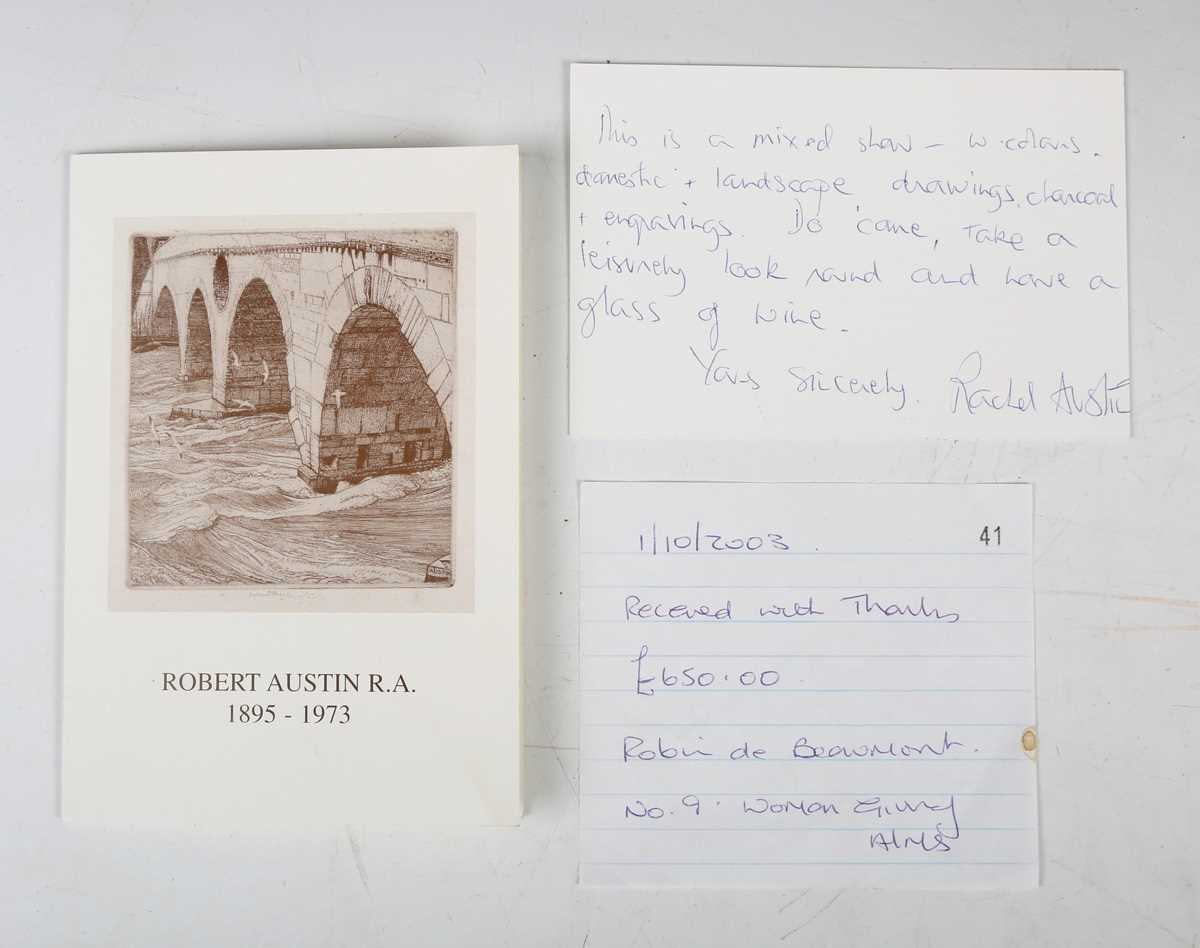 ROBERT AUSTIN R.A.
1895 - 1973
This is a mixed show - w.colours.
domestic + landscape drawings, charcoal
+ engravings. Do come, take a
leisurely look round and have a
glass of wine.
Yours sincerely. Rachel Austin
41
1/10/2003
Received with Thanks
£650.00
Robin de Beaumont.
No. 9. Woman Giving
Alms